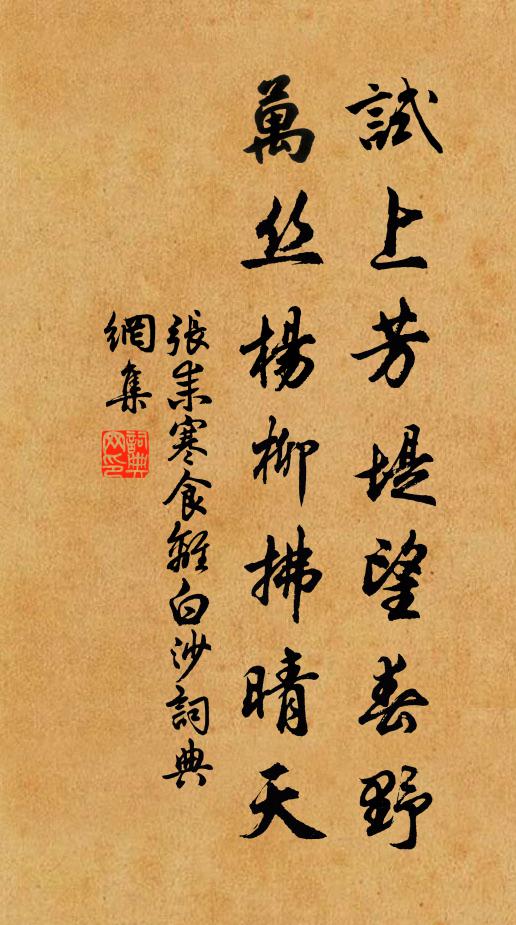 試上芳堤望春野
萬丝楊柳拂晴天
張耒寒食離白沙詞典
網集
詞典
网印